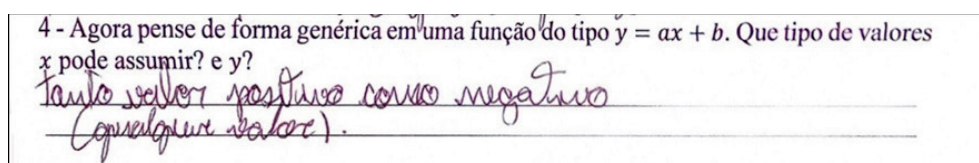 4 - Agora pense de forma genérica em uma função do tipo y = ax + b. Que tipo de valores
x pode assumir? e y?
Tanto valor positivo como negativo
(qualquer valor).